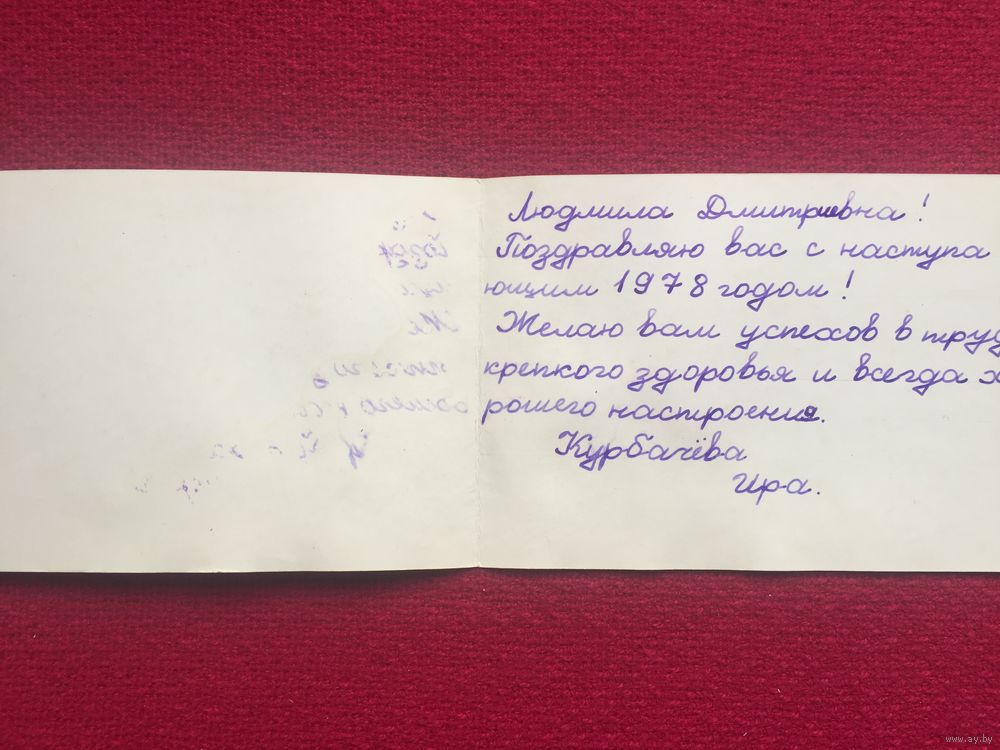 Людмила Дмитриевна!
Поздравляю вас с наступа
ющим 1978 годом!
Желаю вам успехов в труд
крепкого здоровья и всегда х
рошего настроения.
Курбачёва
Ира.
www.ay.by